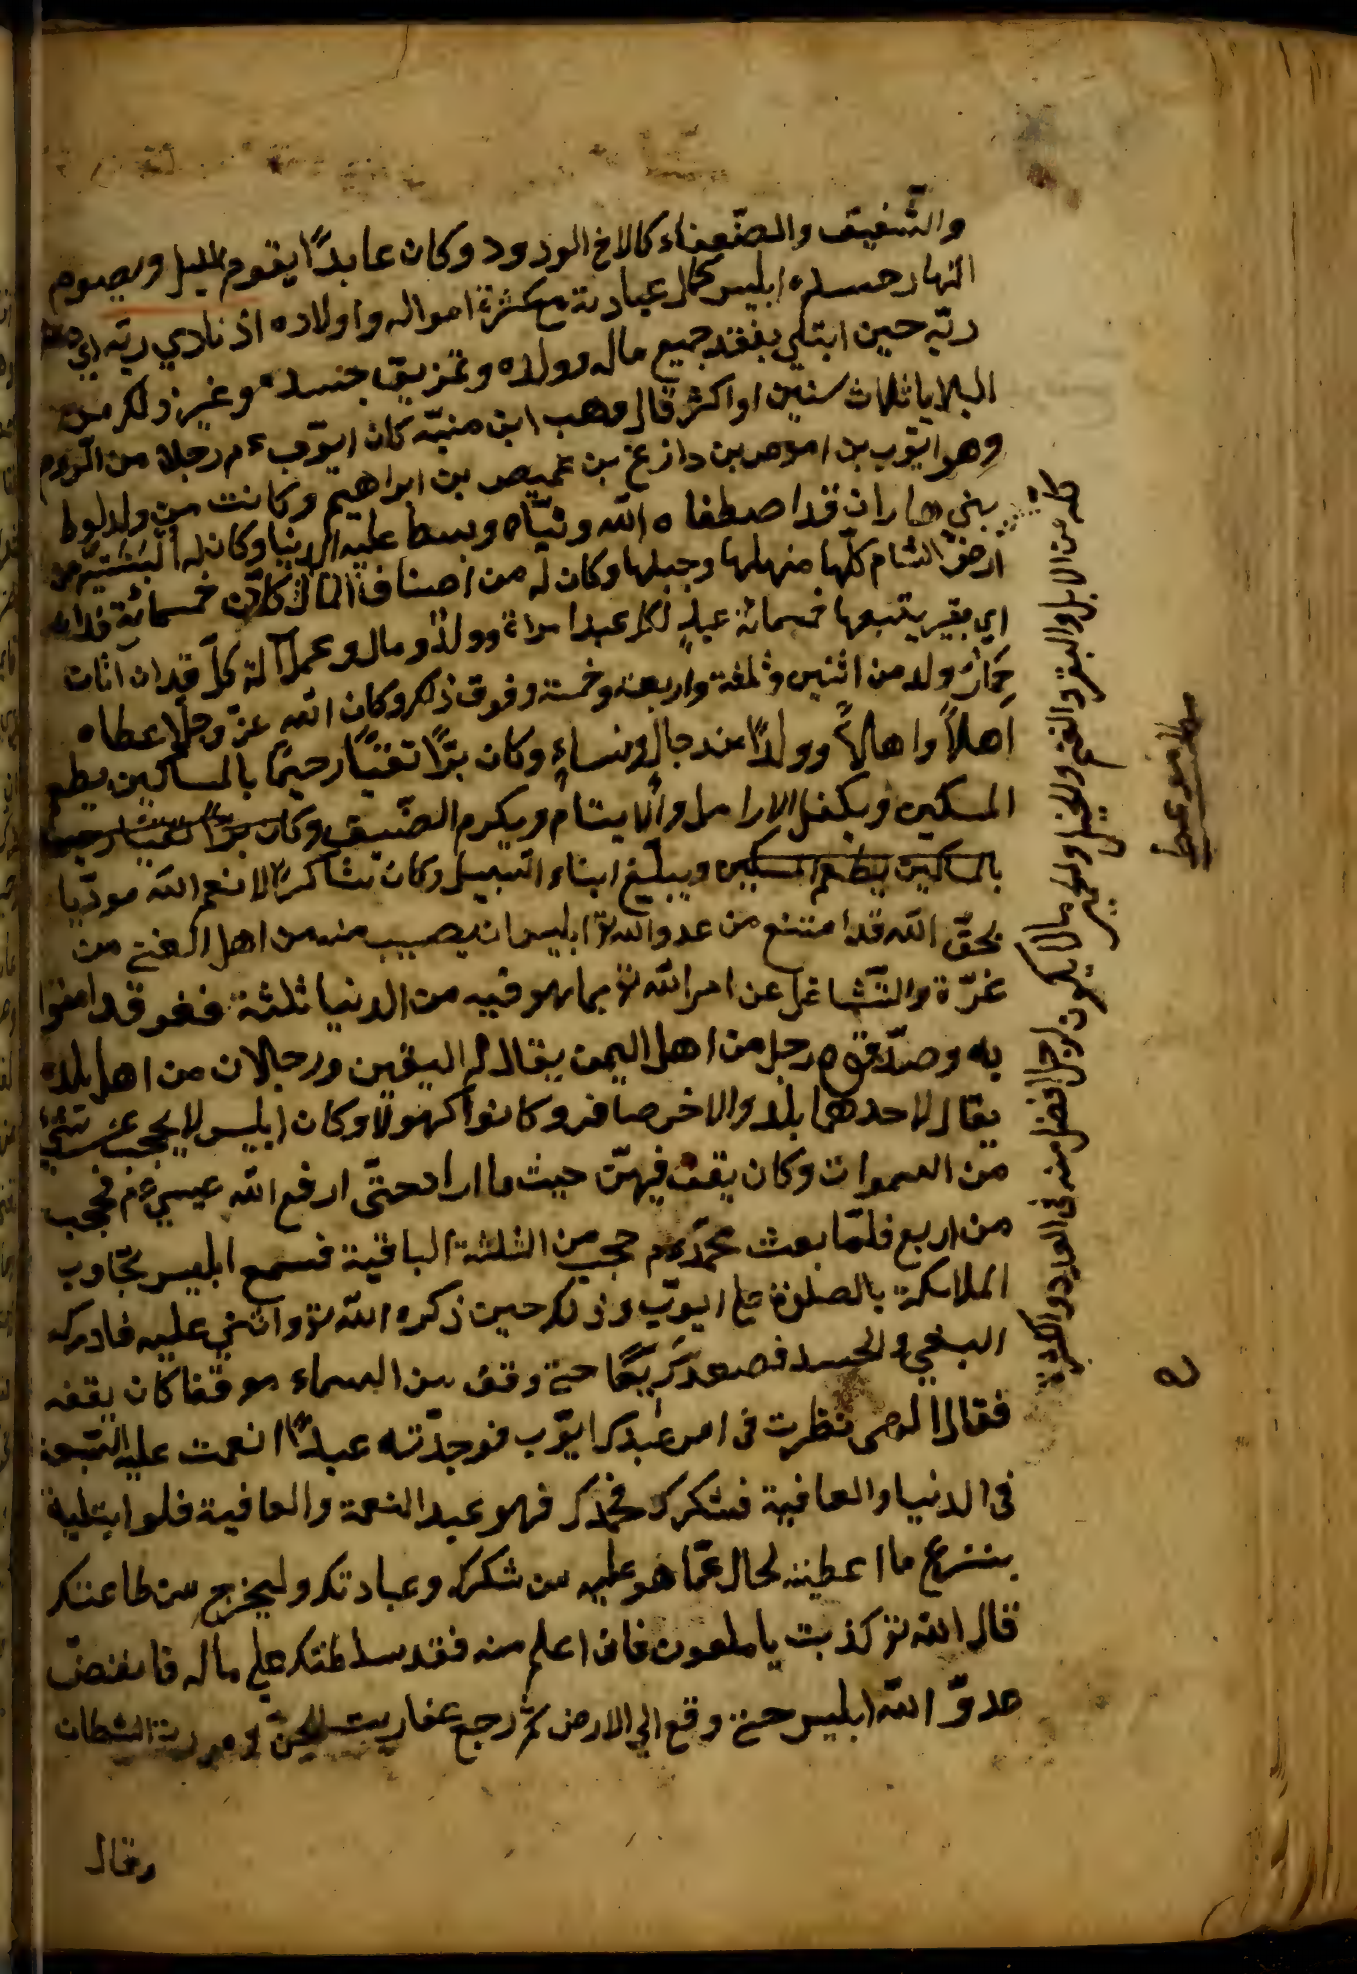 والشفيق والضعفاء كالاخ الودود وكان عابدًا يقوم الليل ويصوم
النهار حسده ابليس كمال عبادته مع كثرة امواله واولاده اذ نادي ربه اي دعا
ربّه حين ابتلي بفقد جميع ماله وولاده وتمزيق جسده وغير ذلك من
البلايا ثلاث سنين او اكثر قال وهب ابن منبّه كان ايّوب ءم رجلا من الروم
وهو ايّوب بن اموص بن دازغ بن عميص بن ابراهيم وكانت من ولد لوط
بني هاران قد اصطفاه الله ونبّاه وبسط عليه الدنيا وكان له البثنية من
ارض الشام كلّها سهلها وجبلها وكان له من اصناف المال كلّه خمسمائة فدان
اي بقير يتبعها خمسمائة عبدٍ لكل عبد امراة وولدٌ ومال وحمل آلة كلّ فدان آتان
حمارٌ ولد من اثنين وثلثة واربعة وخمسة وفوق ذلك وكان الله عزّ وجلّ اعطاه
اهلاً واهالاً وولدًا من رجال ونساءٍ وكان برًّا تقيًّا رحيمًا بالمساكين يطعم
المسكين ويكفل الارامل والايتام ويكرم الضيف وكان برًّا تقيًّا رحيما
بالمساكين يطعم المسكين ويبلّغ ابناء السبيل وكان شاكرًا لانعم الله مودّيا
بحقّ الله قد امتنع من عدو الله ابليس ان يصيب منه من اهل الغني من
غرّة والتّشاغل عن امر الله بما هو فيه من الدنيا ثلثة فغو قد امنوا
به وصدّقوه رجل من اهل اليمن يقال له اليقين ورجلان من اهل بلاده
يقال لاحدهما بلد والاخر صافر وكانوا كهولا وكان ابليس لا يحجب عن شئٍ
من السموات وكان يقف فيهنّ حيث ما اراد حتّى ارفع الله عيسي ءم فحجب
من اربع فلمّا بعث محمّد ءم حجب من الثلثة الباقية فسمع ابليس تجاوب
الملائكة بالصلوة علي ايوّب وذلك حين ذكره الله واثني عليه فادركه
البغي والحسد فصعد سريعًا حتي وقف من السماء موقفا كان يقفه
فقال الهي نظرت في امر عبدك ايّوب فوجدته عبدًا انعمت عليه
في الدنيا والعافية فشكرك فحمدك فهو عبد النعمة والعافية فلو ابتليه
بنزع ما اعطيته لحال عمّا هو عليه من شكرك وعبادتك وليخرج من طاعتك
قال الله كذبت يا ملعون فاني اعلم منه فقد سلطتك علي ماله فانفضّ
عدوّ الله ابليس حتي وقع الي الارض ثم رجع عفاريت الجنّ ومردة الشيطان
وقال
كلّه من الابل والبقر والغنم والخيل والحمير مالا يكون لرجل افضل منه في العدد والكثرة